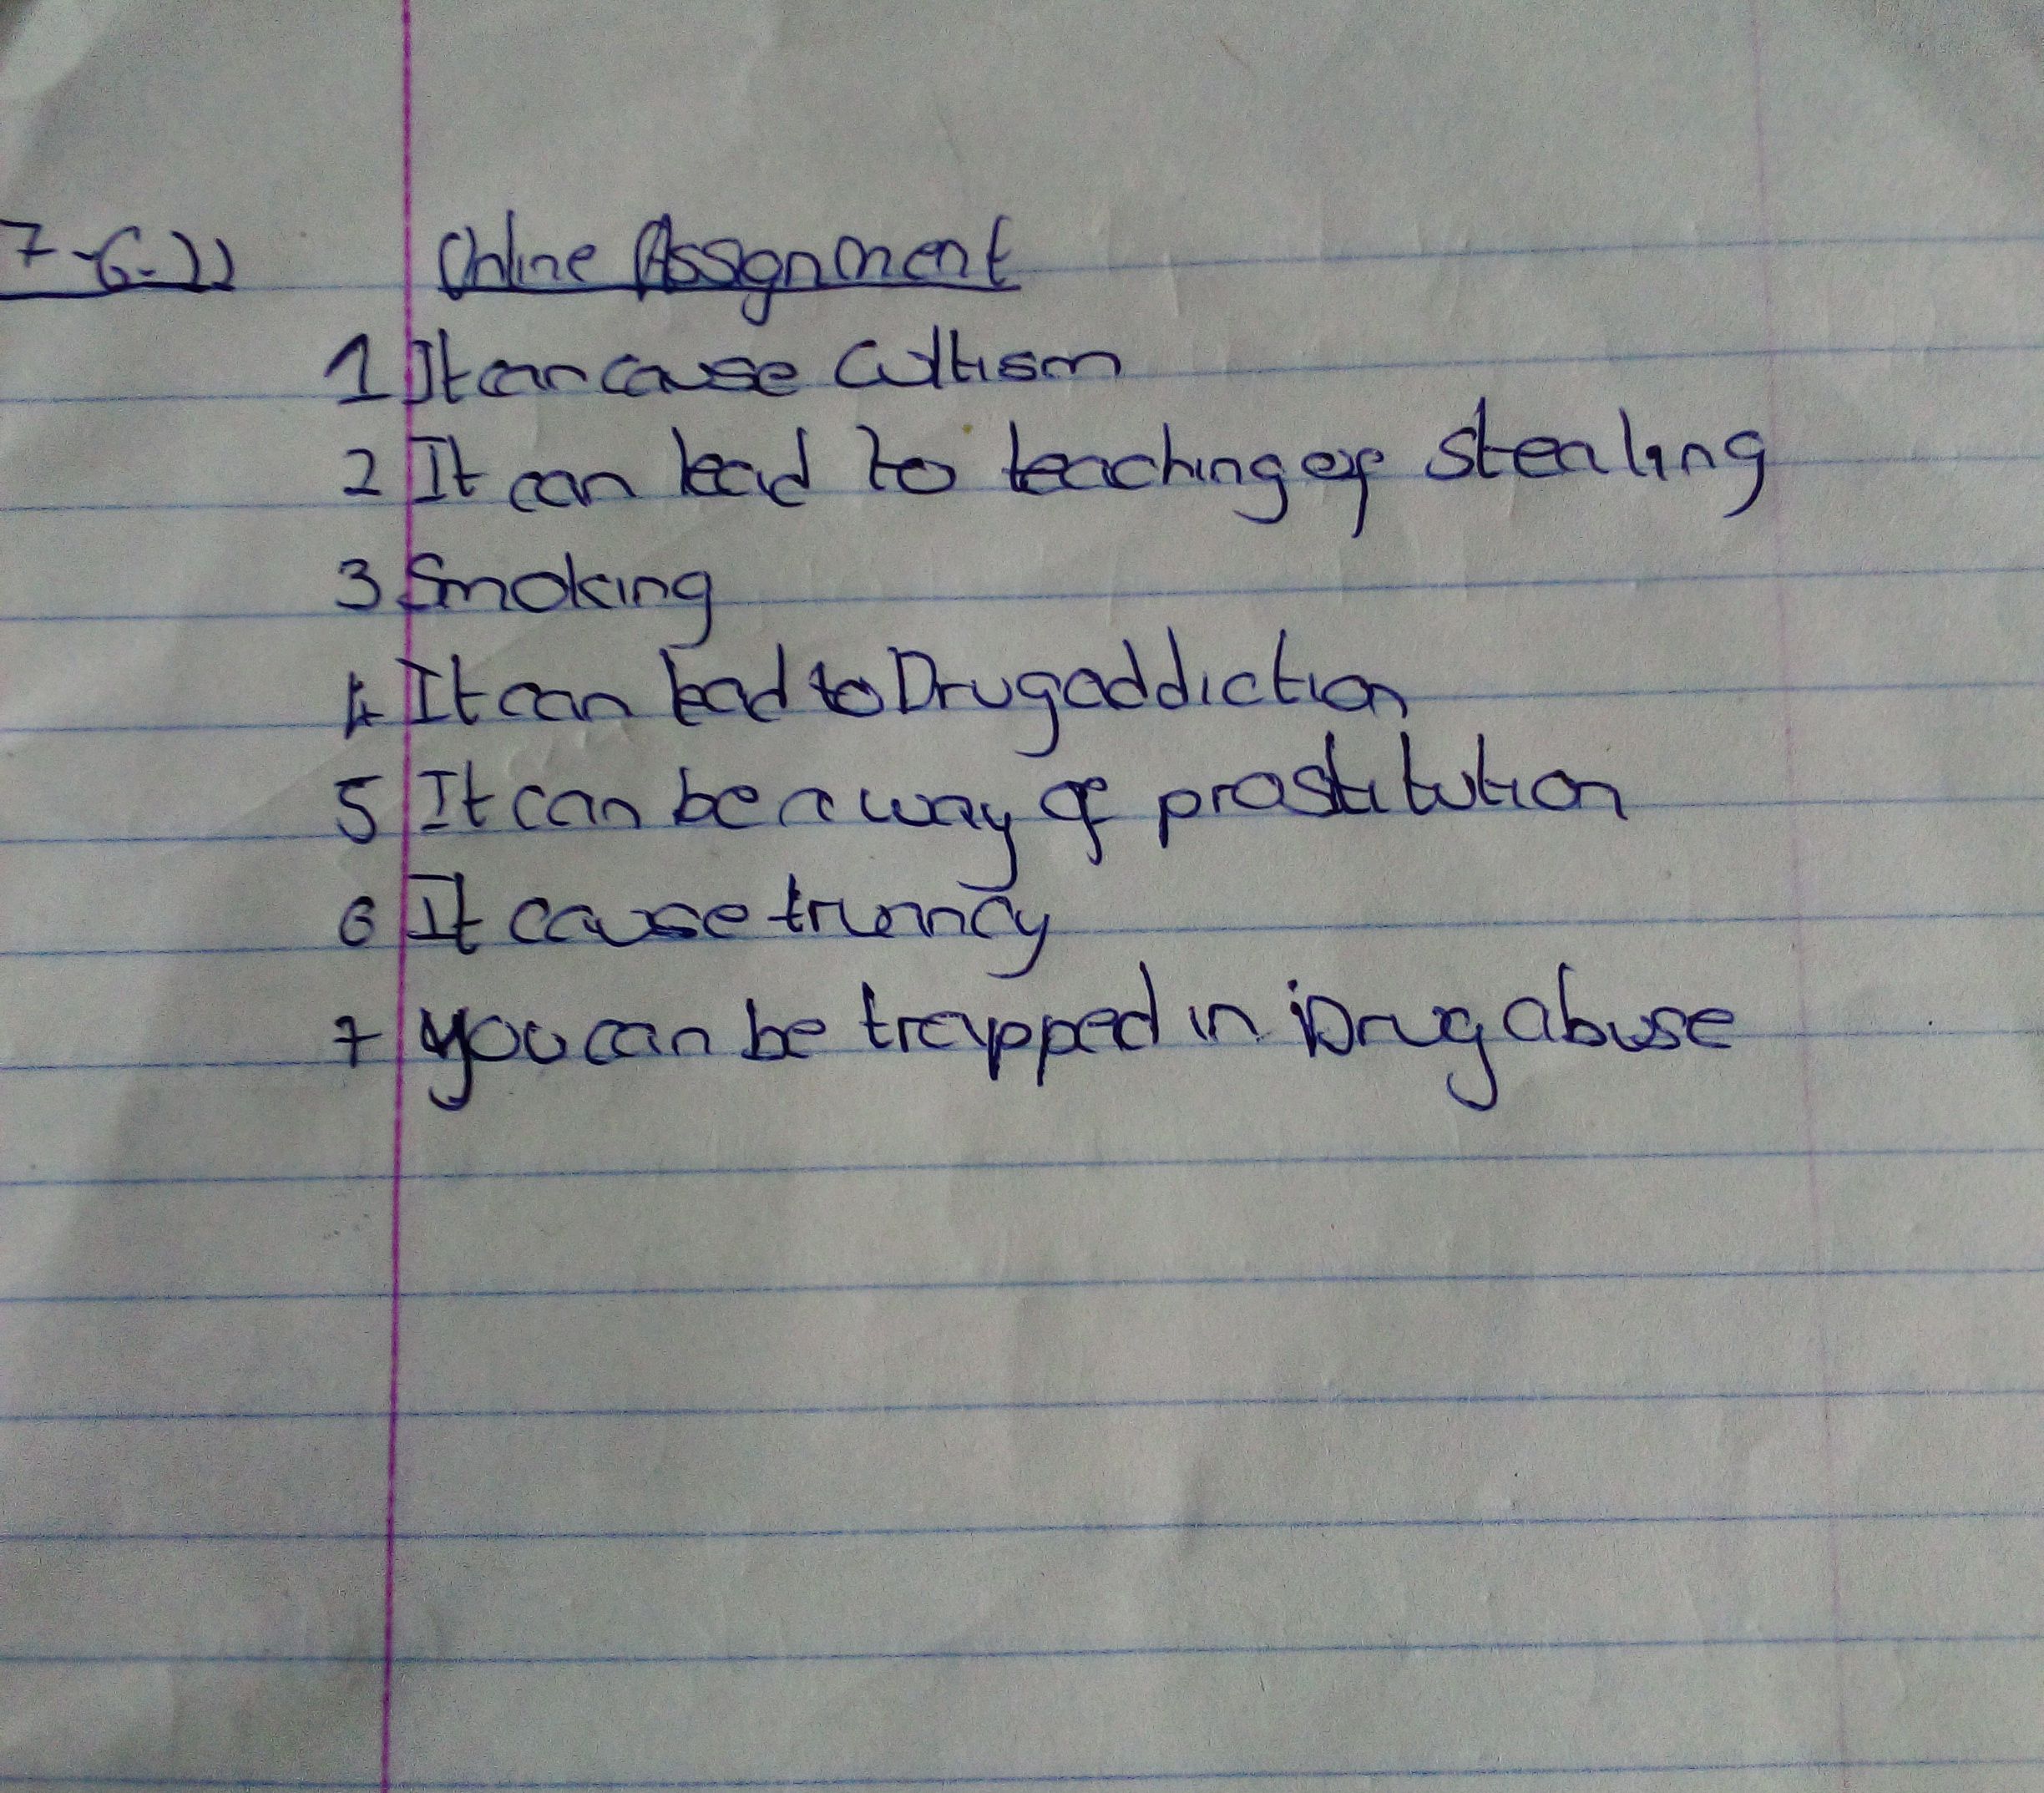 7-6-22 Online Assignment
1 It can cause Cultism
2 It can lead to teaching of stealing
3 Smoking
4 It can lead to Drug addiction
5 It can be a way of prostitution
6 It cause truency
7 you can be trapped in Drug abuse